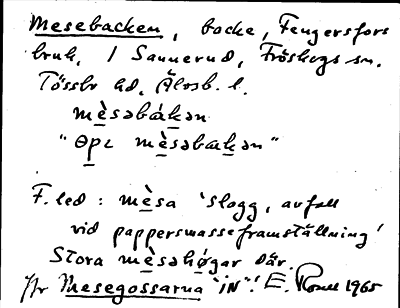 Mesebacken, backe, Fengersfors
bruk, / Sannerud, Fröskogs sn.
Tössbo hd. Älvsb. l.
mèsəbákən
"ɵpɩ mèsəbakən"
F. led: mèsa 'slagg, avfall
vid pappersmasseframställning'
Stora mèsəhøgar där.
Jfr Mesegossarna "IN"! E. 1965